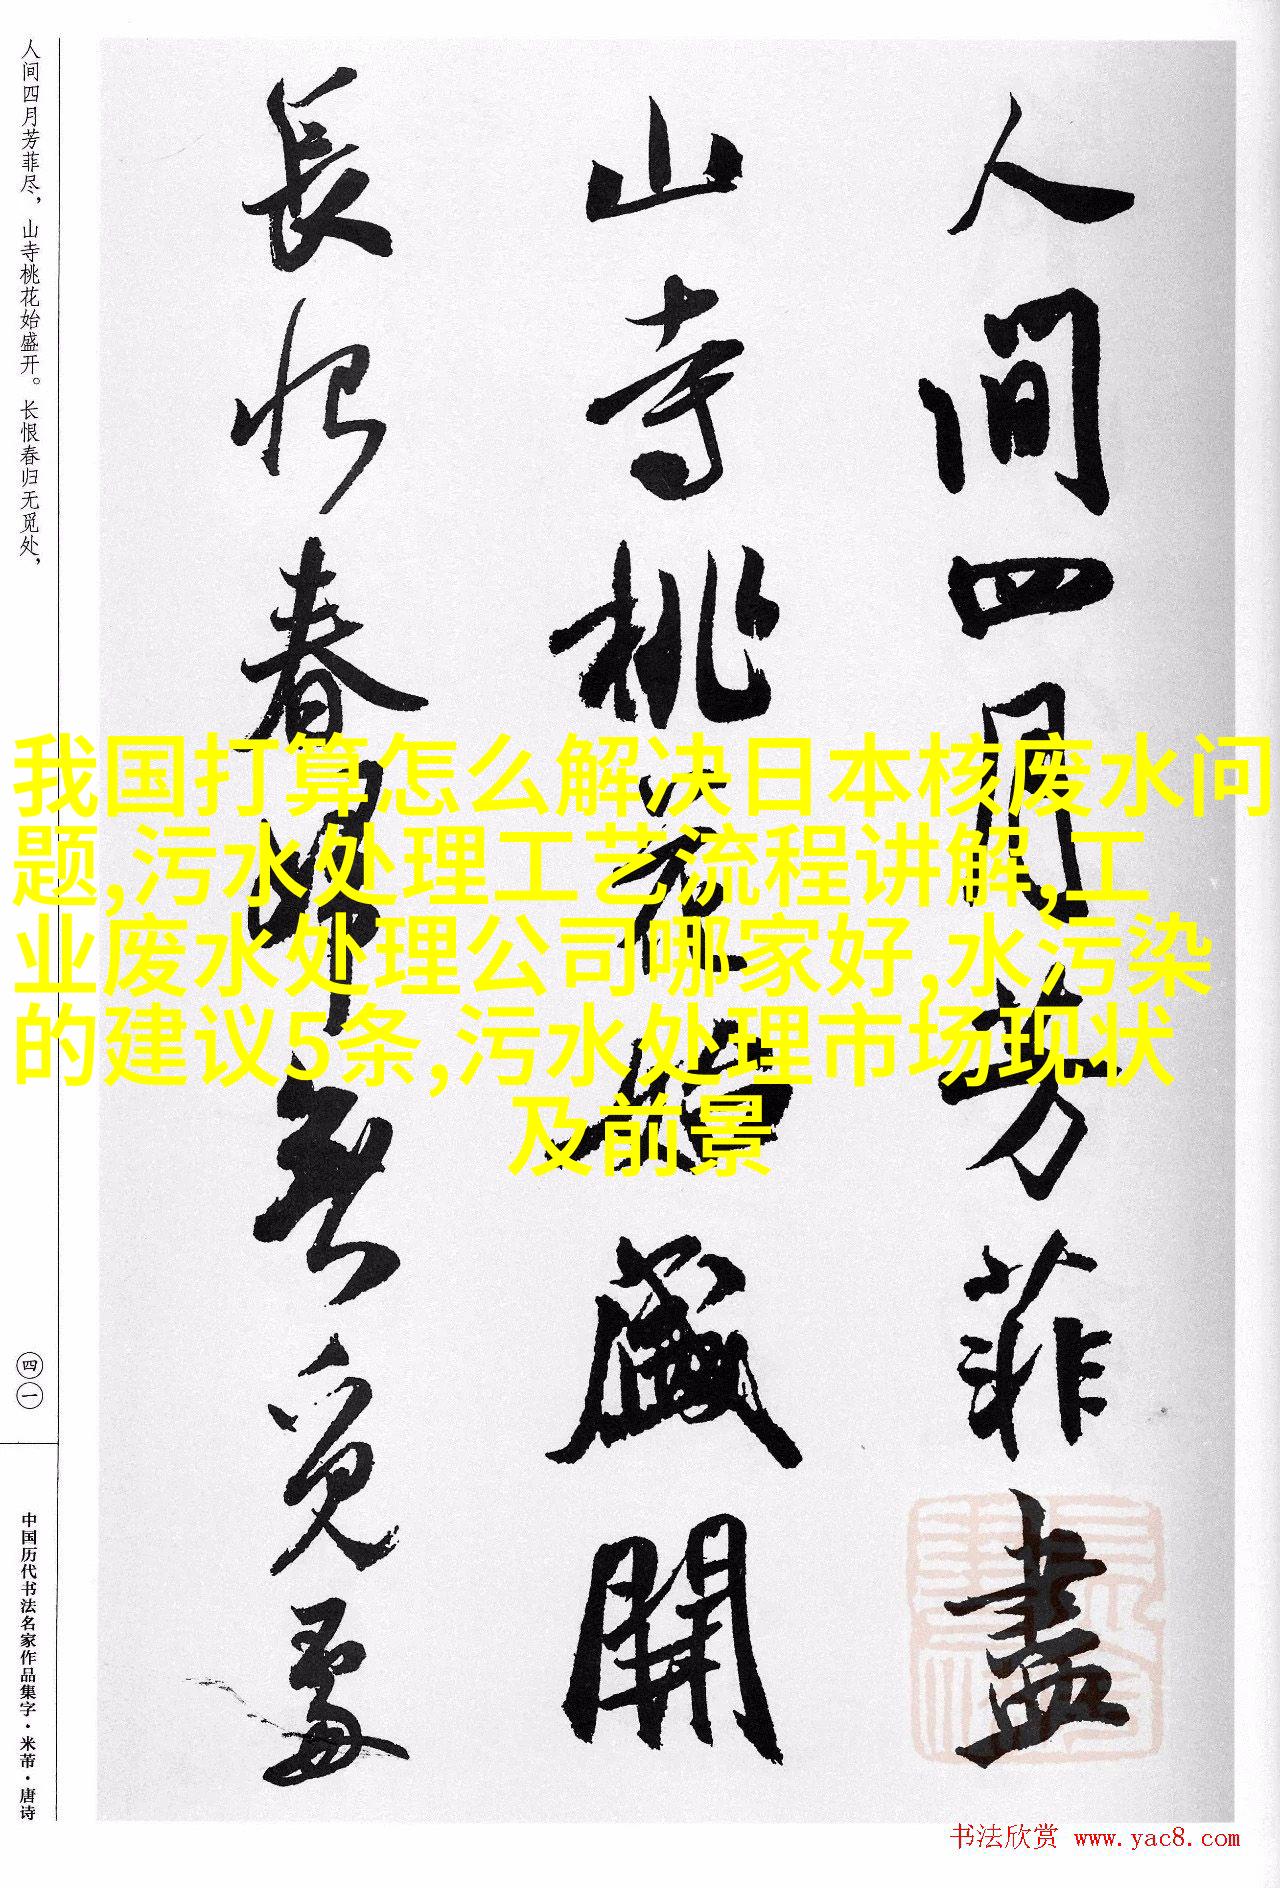 人间四月芳菲尽，山寺桃花始盛开。长恨春归无觅处，
四一
中国历代书法名家作品集字·米芾·唐诗
人間四月芳菲盡
山寺桃花始盛開
長恨春歸無覓處
我国打算怎么解决日本核废水问
题,污水处理工艺流程讲解,工
业废水处理公司哪家好,水污染
的建议5条,污水处理市场现状
及前景
书法欣赏 www.yac8.com